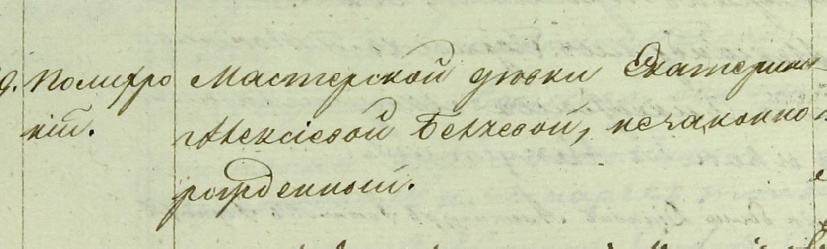 9. Полихро Мастерской дѣвки Екатерины
ній. Алексіевой Бевчевой, незаконно
рожденный.